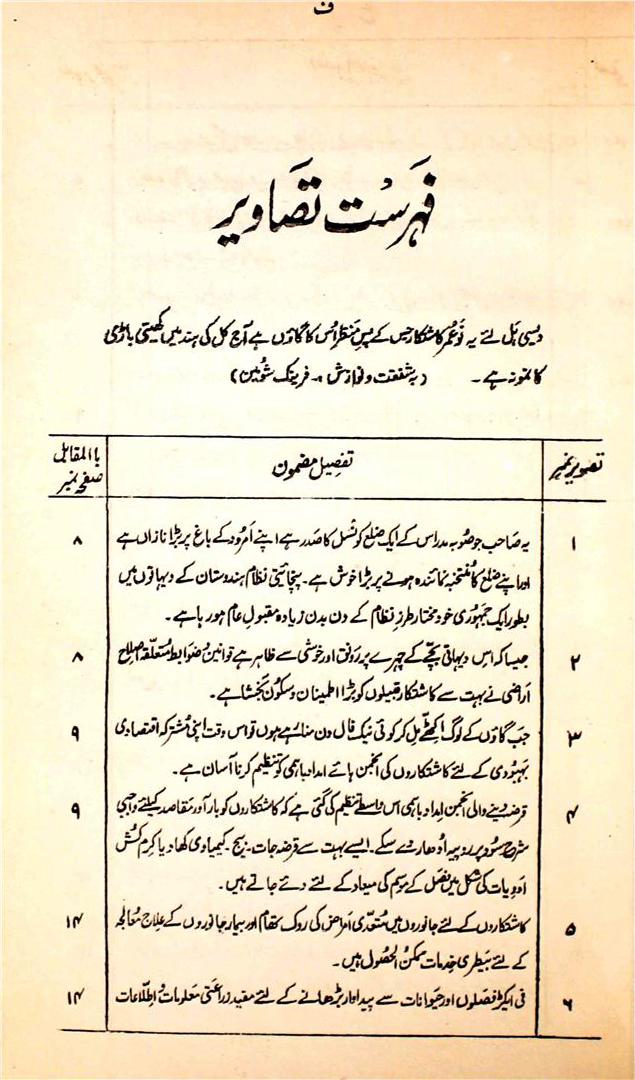 ف
فہرست تصاویر
دیسی ہل لئے یہ نوعمر کاشتکار جس کے پس منظر اُس کا گاؤں ہے آج کل کی ہند میں کھیتی باڑی
کا نمونہ ہے۔ (بہ شفقت و نوازش :- فرینک شوئین)
تصویر نمبر تفصیل مضمون باالمقابل صفحہ نمبر
۱ یہ صاحب جو صوبہ مدراس کے ایک ضلع کونسل کا صدر ہے اپنے اَمرُود کے باغ پر بڑا نازاں ہے ۸
اور اپنے ضلع کا مُنتخبہ نمائندہ ہونے پر بڑا خوش ہے۔ پنچائیتی نظام ہندوستان کے دیہاتوں میں
بطور ایک جمہوری خود مختار طرزِ نظام کے دن بدن زیادہ مقبولِ عام ہو رہا ہے۔
۲ جیسا کہ اِس دیہاتی بچّے کے چہرے پر رونق اور خوشی سے ظاہر ہے قوانین و ضوابط مُتعلّقہ اصلاح ۸
اَراضی نے بہت سے کاشتکار قبیلوں کو بڑا اطمینان و سکُون بَخشا ہے۔
۳ جب گاؤں کے لوگ اکٹھے مِل کر کوئی نیک فال دن منا رہے ہوں تو اس وقت اپنی مُشترکہ اقتصادی ۹
بہبُودی کے لئے کاشتکاروں کی انجمن ہائے امداد باہمی کو تنظیم کرنا آسان ہے۔
۴ قرضہ دینے والی انجمن اِمداد باہمی اس واسطے تنظیم کی گئی ہے کہ کاشتکاروں کو بار آور مقاصد کیلئے واجبی ۹
شرح سُود پر روپیہ اُدھار دے سکے۔ ایسے بہت سے قرضہ جات۔ بیج۔ کیمیاوی کھاد یا کِرم کُش
ادویات کی شکل میں فصل کے موسم کی میعاد کے لئے دئے جاتے ہیں۔
۵ کاشتکاروں کے لئے جانوروں میں مُتعدّی امراض کی روک تھام اور بیمار جانوروں کے علاج معالجہ ۱۴
کے لئے بیطری خدمات ممکنُ الحصُول ہیں۔
۶ فی ایکڑ فصلوں اور حیوانات سے پیداوار بڑھانے کے لئے مفید زراعتی معلومات و اِطّلاعات ۱۴